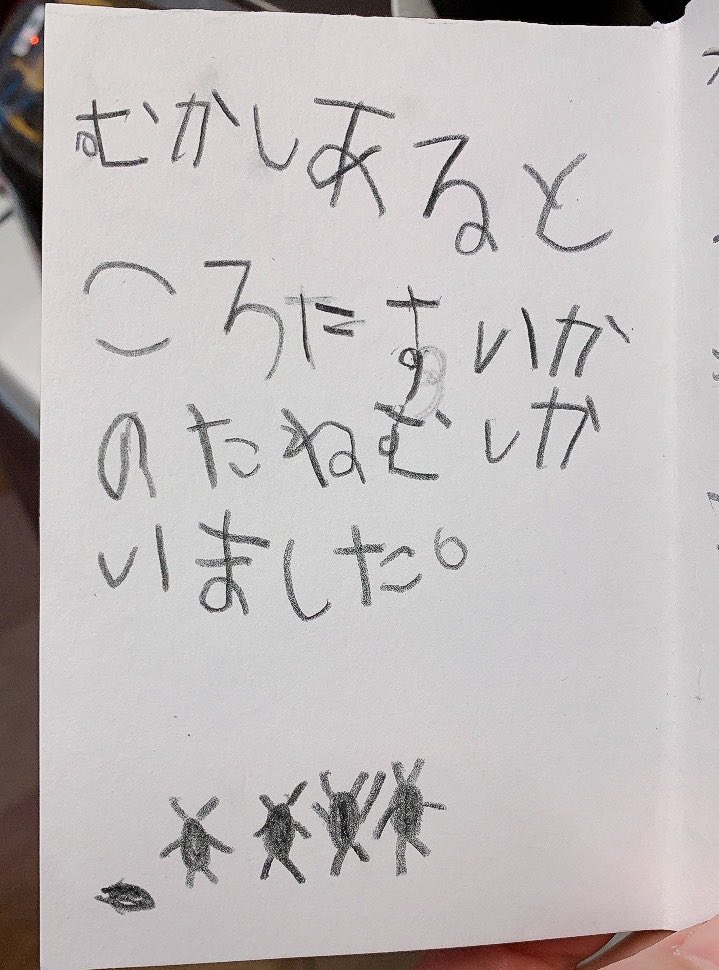 むかしあると
ころたすいか
のたねむしか
いました。